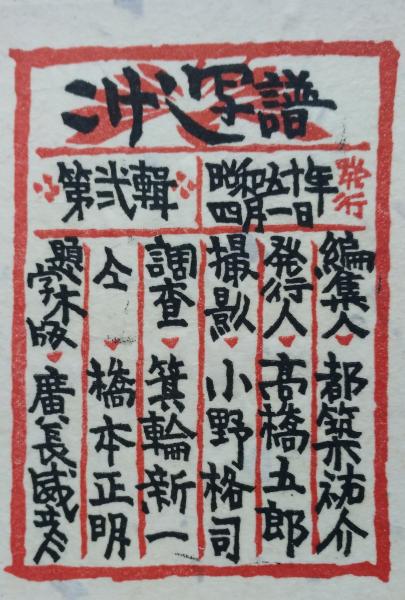 こけし写譜
第弐輯
昭和五十年
四月一日
発行
編集人 都築祐介
発行人 高橋五郎
撮影 小野格司
調査 箕輪新一
仝 橋本正明
題字木版 廣長威彦